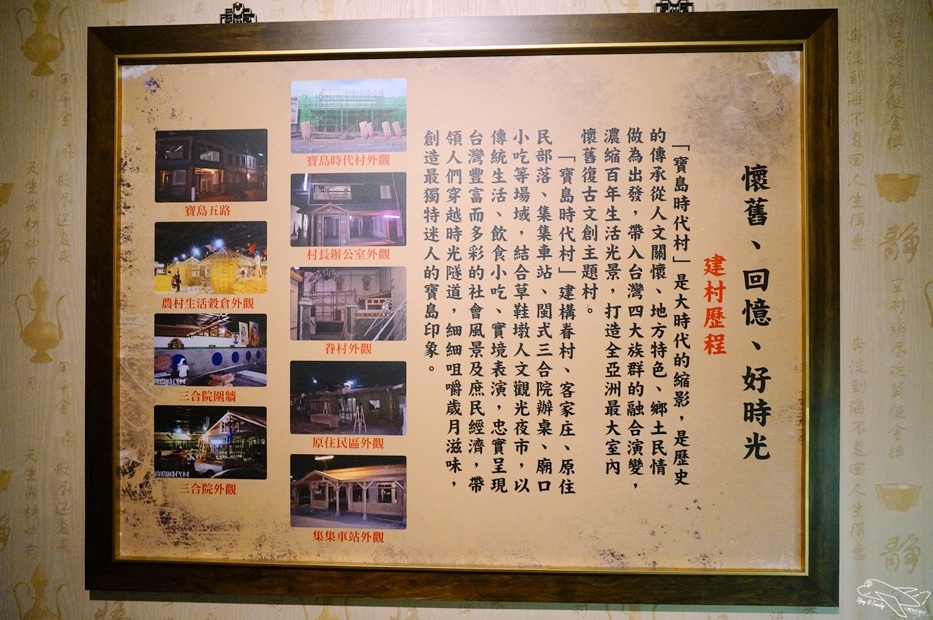 懷舊、回憶、好時光
建村歷程
「寶島時代村」是大時代的縮影，是歷史
的傳承從人文關懷、地方特色、鄉土民情
做為出發，帶入台灣四大族群的融合演變，
濃縮百年生活光景，打造全亞洲最大室內
懷舊復古文創主題村。
「寶島時代村」建構眷村、客家庄、原住
民部落、集集車站、閩式三合院辦桌、廟口
小吃等場域，結合草鞋墩人文觀光夜市，以
傳統生活、飲食小吃、實境表演，忠實呈現
台灣豐富而多彩的社會風景及庶民經濟，帶
領人們穿越時光隧道，細細咀嚼歲月滋味，
創造最獨特迷人的寶島印象。
寶島時代村外觀
村長辦公室外觀
眷村外觀
原住民區外觀
集集車站外觀
寶島五路
農村生活穀倉外觀
三合院圍牆
三合院外觀